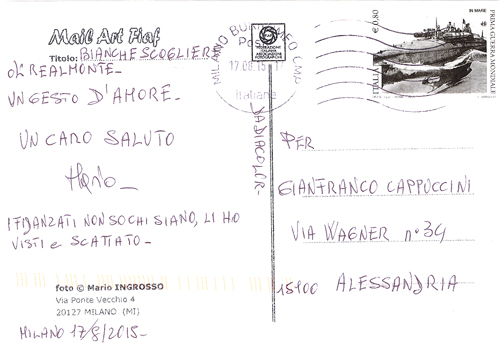 Mail Art Fiaf
Titolo: BIANCHE SCOGLIERE
DI REALMONTE_
UN GESTO D'AMORE_
UN CARO SALUTO
Mario_
I FIDANZATI NON SO CHI SIANO, LI HO
VISTI e SCATTATO_
foto © Mario INGROSSO
Via Ponte Vecchio 4
20127 MILANO (MI)
MILANO 17/8/2015_
MILANO BORROMEO CMP
Poste
17.08.15
Italiane
DA DIACOLOR_
€ 0,80
ITALIA
IN MARE
PRIMA GUERRA MONDIALE
PER
GIANFRANCO CAPPUCCINI
VIA WAGNER n° 34
15100 ALESSANDRIA